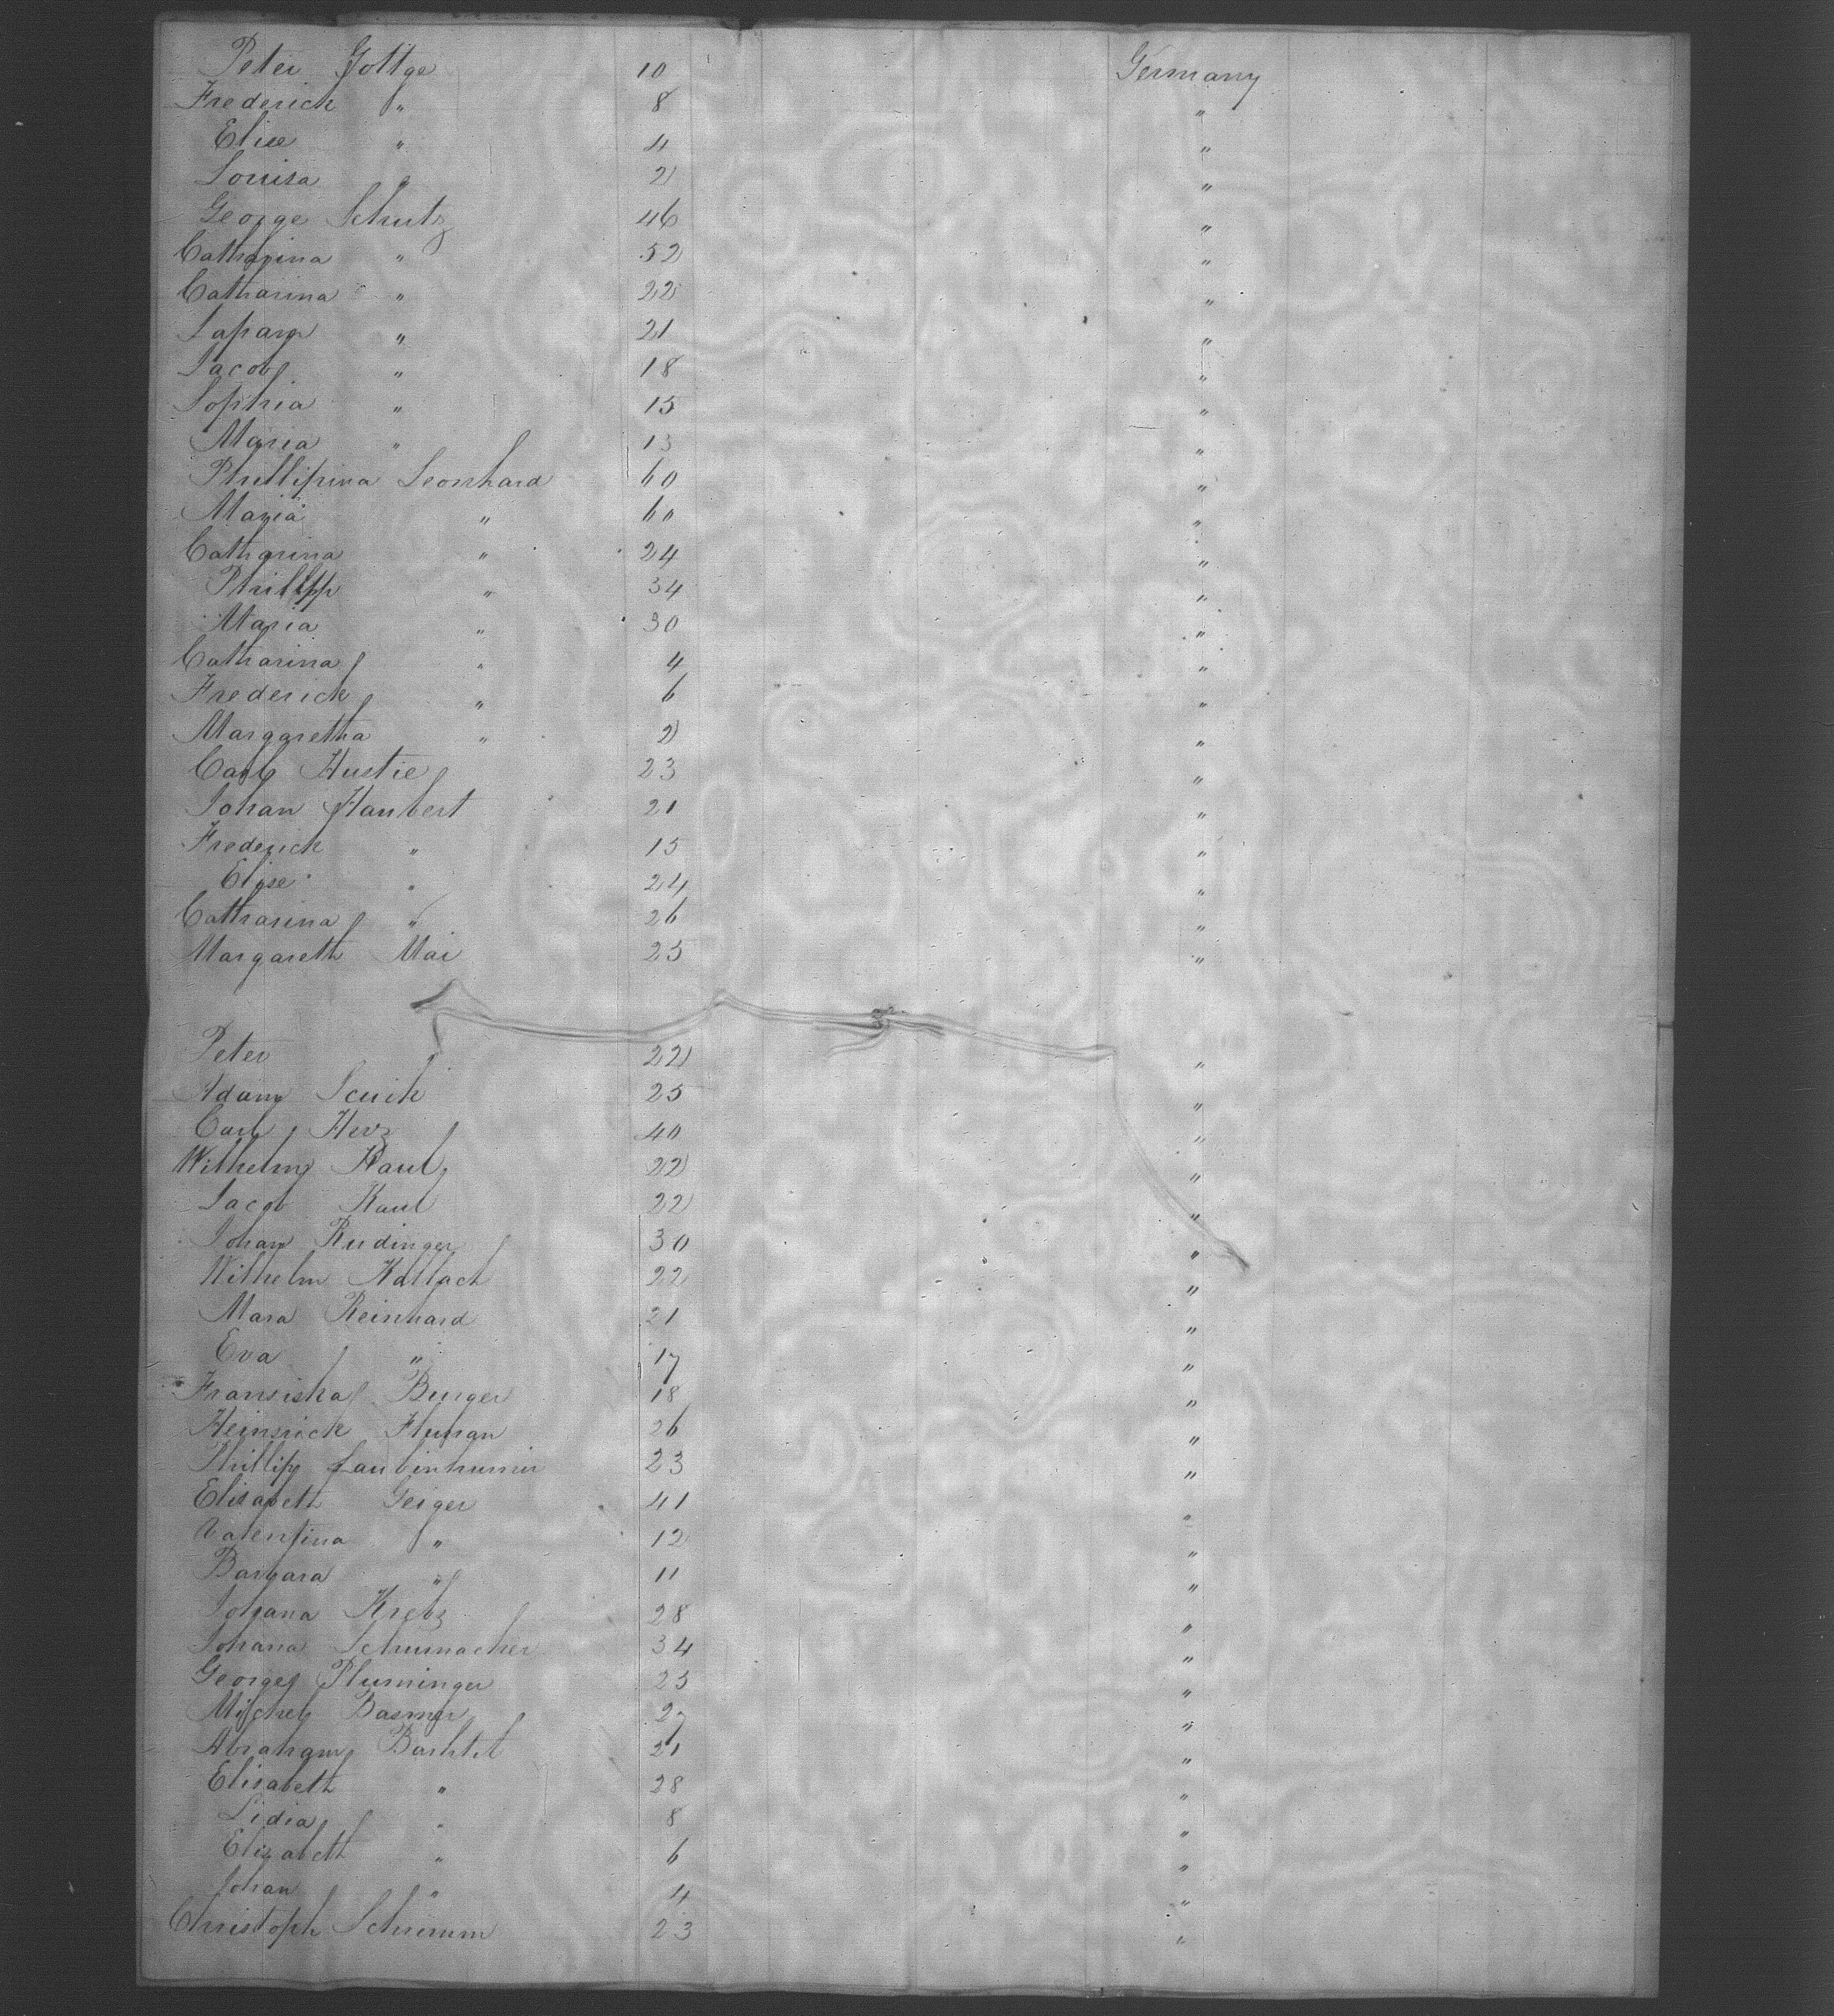 Peter Gottge 10 Germany
Frederick " 8 "
Elise " 4 "
Louisa " 2 "
George Schutz 46 "
Catharina " 52 "
Catharina " 22 "
" 21 "
Jacob " 18 "
Sophia " 15 "
Maria " 13 "
Phillipina Leonhard 60 "
Maria " 60 "
Catharina " 24 "
Phillipp " 34 "
Maria " 30 "
Catharina " 4 "
Frederick " 6 "
Margaretha " 2 "
Carl Hustie 23 "
Johan Haubert 21 "
Frederick " 15 "
Elise " 24 "
Catharina " 26 "
Margareth Mai 25 "
Peter 22 "
Adam 25 "
Carl Herz 40 "
Wilhelm Kaul 22 "
Jacob Kaul 22 "
Johan Rudinger 30 "
Wilhelm Kallach 22 "
Mara Reinhard 21 "
Eva " 17 "
Fransiska Burger 18 "
Heinrick 26 "
Phillip 23 "
Elisabeth Geiger 41 "
Valentina " 12 "
Barbara " 11 "
Johana Krebs 28 "
Johana Schumacher 34 "
George Pluminger 25 "
Michel 27 "
Abraham 21 "
Elisabeth " 28 "
Lidia " 8 "
Elizabeth " 6 "
Johan " 4 "
Christoph Schramm 23 "